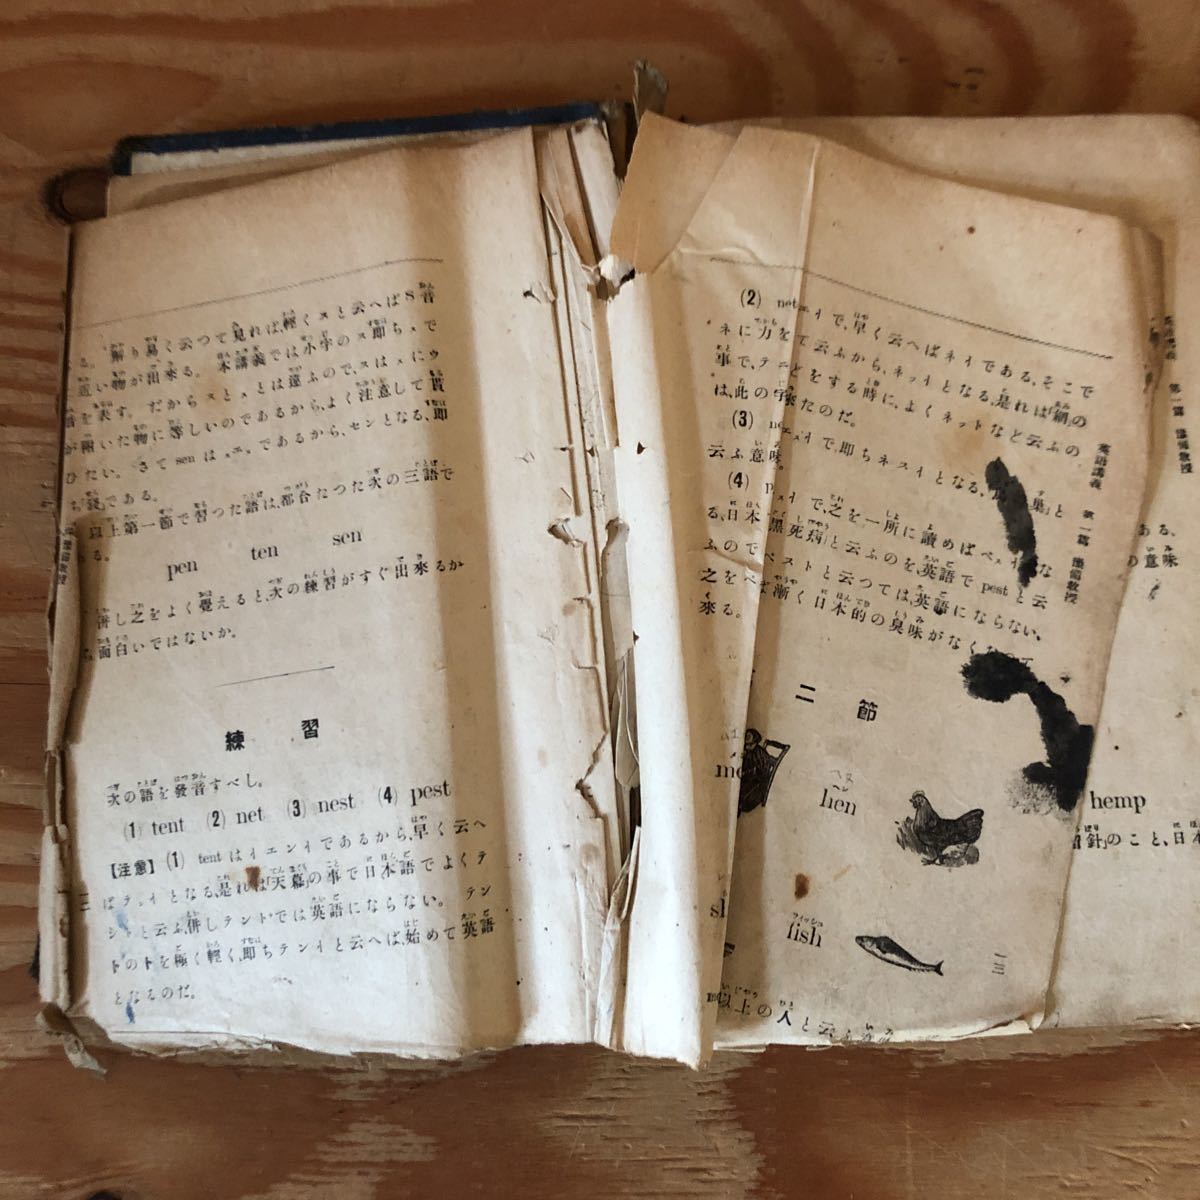 る。解り易く云つて見れば、輕くスと云へばS音
近い物が出來る。本講義では小字のス即ちスで
音を表す。だからスとスとは違ふので、スはスにウ
が附いた物に等しいのであるから、よく注意して貰
ひたい。さて sen はスエンであるから、センとなる、即
ち「錢」である。
以上第一節で習つた語は、都合たつた次の三語で
ある。
pen ten sen
併し之をよく覺えると、次の練習がすぐ出來るか
ら面白いではないか。
練習
次の語を發音すべし。
(1) tent (2) net (3) nest (4) pest
【注意】 (1) tent はイエンイであるから、早く云へ
ばテンイとなる、是れは「天幕」の事で日本語でよくテ
ントと云ふ、併しテントでは英語にならない。テン
トのトを極く輕く、即ちテンイと云へば、始めて英語
となるのだ。
英語講義 第一篇 豫備教授
(2) net エイで、早く云へばネイである、そこで
ネに力をて云ふから、ネッイとなる、是れは「網」の
事で、テニどをする時に、よくネットなど云ふの
は、此の字來たのだ。
(3) ne で、即ちネスイとなる、「巣」と
云ふ意味。
(4) p スイで、之を一所に讀めばペスイ な
る、日本「黒死病」と云ふのを、英語で pest と云
ふのでペストと云つては、英語にならない、
之をペば漸く日本的の臭味がなくなつて
來る。
二節
ヘヌ
ヘン
hen
フィッシュ
fish
一三
以上の人と云ふ意味
英語講義 第一篇 豫備教授
ある、
の意味
hemp
留針」のこと、日本